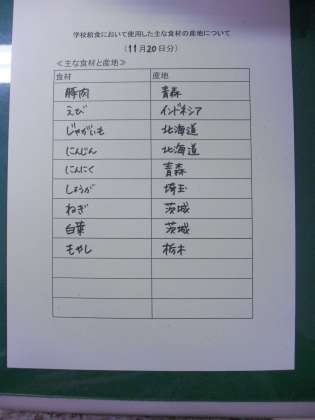 学校給食において使用した主な食材の産地について
(11月20日分)
<主な食材と産地>
食材 産地
豚肉 青森
えび インドネシア
じゃがいも 北海道
にんじん 北海道
にんにく 青森
しょうが 埼玉
ねぎ 茨城
白菜 茨城
もやし 栃木